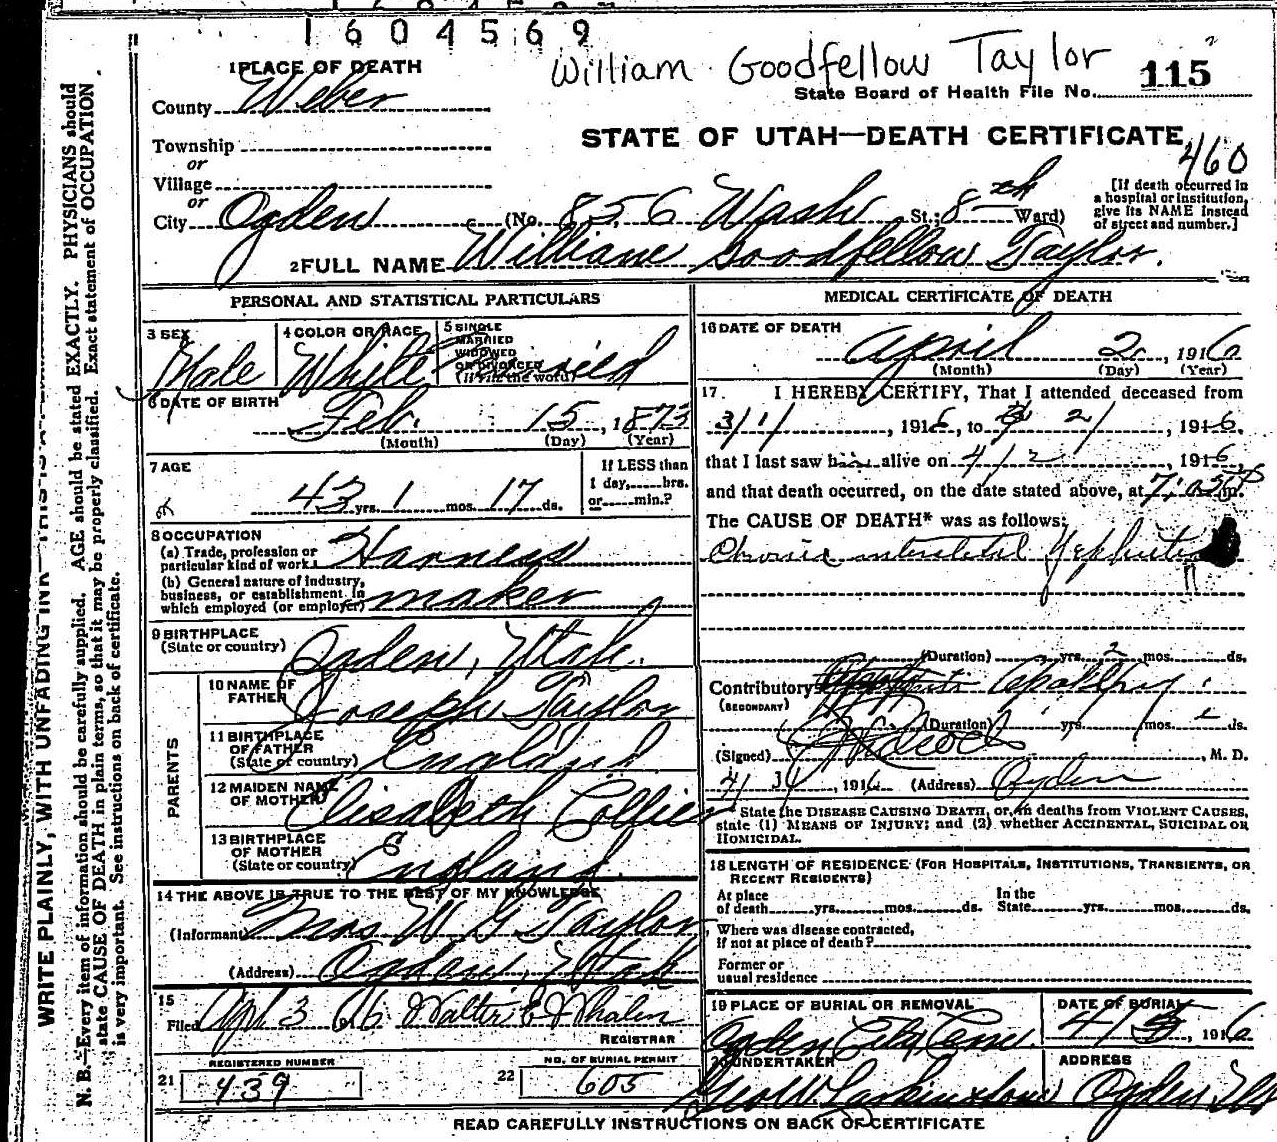 1604569
William Goodfellow Taylor
1 PLACE OF DEATH
County Weber
State Board of Health File No. 115
Township
or
Village
or
STATE OF UTAH—DEATH CERTIFICATE
460
City Ogden (No. 856 Wash St.; 8th Ward)
[If death occurred in
a hospital or institution,
give its NAME instead
of street and number.]
2 FULL NAME William Goodfellow Taylor.
PERSONAL AND STATISTICAL PARTICULARS
3 SEX
Male
4 COLOR OR RACE
White
5 SINGLE
MARRIED
WIDOWED
OR DIVORCED
(Write the word)
Married
6 DATE OF BIRTH
Feb. 15, 1873
(Month) (Day) (Year)
7 AGE
43 yrs. 1 mos. 17 ds.
If LESS than
1 day, hrs.
or min.?
8 OCCUPATION
(a) Trade, profession or
particular kind of work
Harness
(b) General nature of industry,
business, or establishment in
which employed (or employer)
maker
9 BIRTHPLACE
(State or country)
Ogden, Utah.
PARENTS
10 NAME OF
FATHER
Joseph Taylor
11 BIRTHPLACE
OF FATHER
(State or country)
England
12 MAIDEN NAME
OF MOTHER
Elisabeth Collier
13 BIRTHPLACE
OF MOTHER
(State or country)
England.
14 THE ABOVE IS TRUE TO THE BEST OF MY KNOWLEDGE
(Informant) Mrs W G Taylor
(Address) Ogden, Utah
15
Filed Apl 3 Walter E Whalen
REGISTRAR
REGISTERED NUMBER
21 439
NO. OF BURIAL PERMIT
22 605
MEDICAL CERTIFICATE OF DEATH
16 DATE OF DEATH
April 2, 1916
(Month) (Day) (Year)
17. I HEREBY CERTIFY, That I attended deceased from
3/1, 1916, to 2/, 1916.
that I last saw him alive on 4/2, 1916,
and that death occurred, on the date stated above, at m.
The CAUSE OF DEATH* was as follows:
Chronic interstitial Nephritis
(Duration) yrs. 2 mos. ds.
Contributory
(SECONDARY)
(Duration) yrs. mos. ds.
(Signed) , M. D.
4/3, 1916 (Address) Ogden
* State the DISEASE CAUSING DEATH, or, in deaths from VIOLENT CAUSES,
state (1) MEANS OF INJURY; and (2) whether ACCIDENTAL, SUICIDAL OR
HOMICIDAL.
18 LENGTH OF RESIDENCE (FOR HOSPITALS, INSTITUTIONS, TRANSIENTS, OR
RECENT RESIDENTS)
At place
of death yrs. mos. ds.
In the
State yrs. mos. ds.
Where was disease contracted,
if not at place of death?
Former or
usual residence
19 PLACE OF BURIAL OR REMOVAL
Ogden City Cem.
DATE OF BURIAL
4/5, 1916
20 UNDERTAKER
Geo W. Larkin & Sons
ADDRESS
Ogden
READ CAREFULLY INSTRUCTIONS ON BACK OF CERTIFICATE
WRITE PLAINLY, WITH UNFADING INK—THIS IS A
N. B.—Every item of information should be carefully supplied. AGE should be stated EXACTLY. PHYSICIANS should
state CAUSE OF DEATH in plain terms, so that it may be properly classified. Exact statement of OCCUPATION
is very important. See instructions on back of certificate.